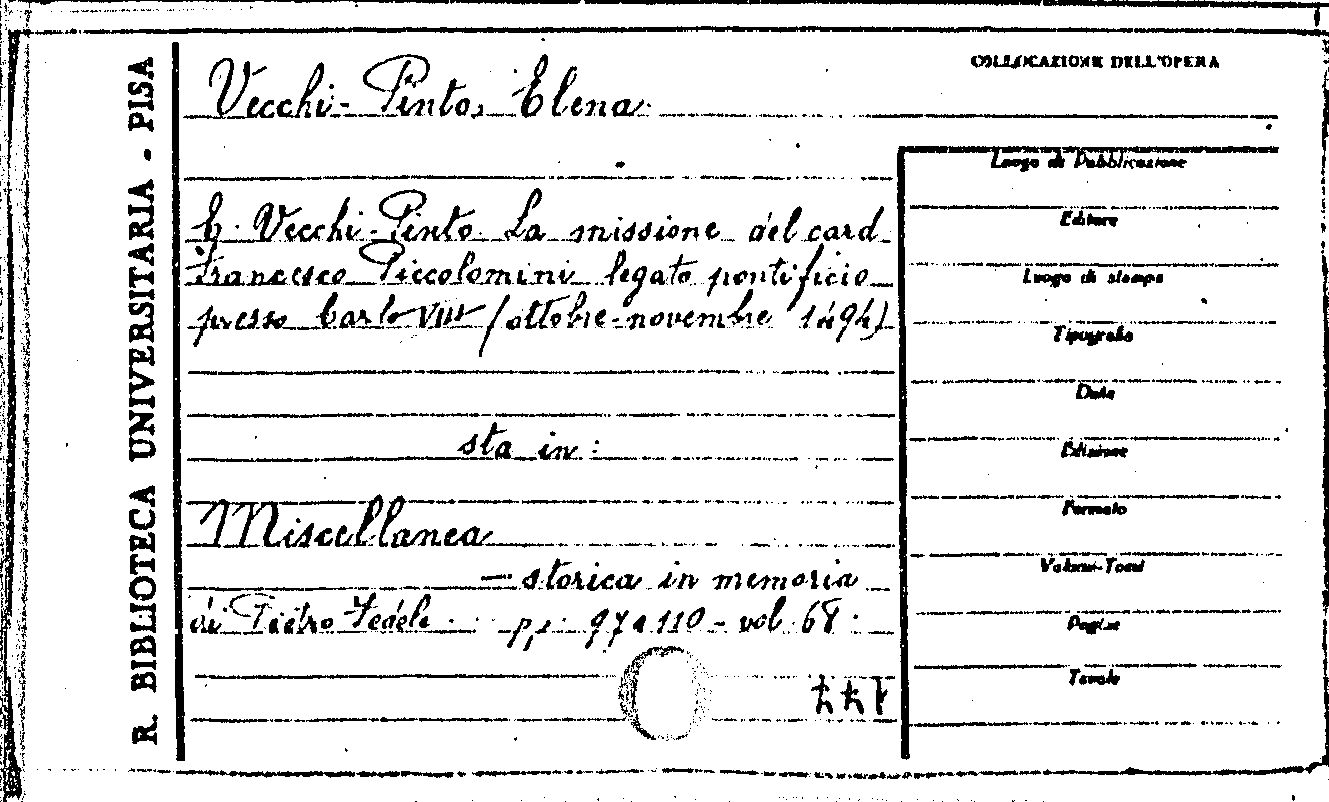 R. BIBLIOTECA UNIVERSITARIA - PISA
COLLOCAZIONE DELL'OPERA
Vecchi-Pinto, Elena.
Vecchi-Pinto. La missione del card
Francesco Piccolomini legato pontificio
presso Carlo VIII (ottobre-novembre 1494)
sta in:
Miscellanea
— storica in memoria
di Pietro Fedele. pp. 97 a 110 - vol. 68.
Luogo di Pubblicazione
Editore
Luogo di stampa
Tipografia
Data
Edizione
Formato
Volumi-Tomi
Pagine
Tavole